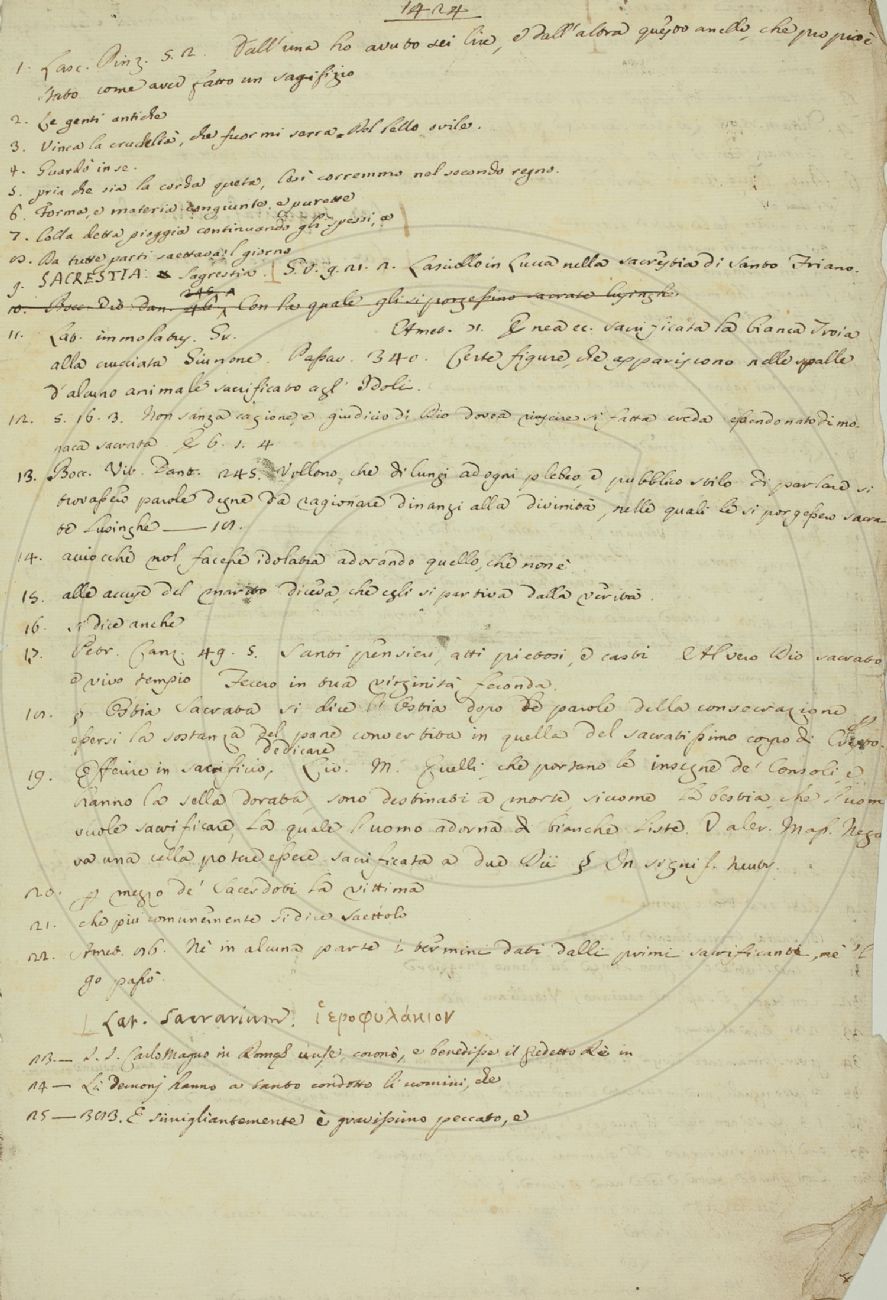 1424
1. Lasc. Pinz. 5. 2. Dall'una ho avuto sei lire, e dall'altra questo anello, che pro
stato come aver fatto un sagrifizio
2. Le genti antiche
3. Vinca la crudeltà, che fuor mi serra Del bello ovile.
4. Guardò in se.
5. pria che sia la corda queta, Così corremmo nel secondo regno.
6. Forma, e materia congiunte, e purette
7. Colla detta pioggia continuando gli spessi, e
8. Da tutte parti saettava il giorno
9. SACRESTIA: Sagrestia. [ G. V. 9. 21. 2. Lasciollo in Lucca nella sacrestia di Santo Friano.
10. Bocc. Vit. Dan. 245. Con la quale gli si porgessino sacrate lusinghe
11. Lat. immolatus. Gr. Amet. 71. Enea ec. sacrificata la bianca Troia
alla cruciata Giunone. Passav. 340. Certe figure, che appariscono nelle spalle
d'alcuno animale sacrificato agl' Idoli.
12. 5. 16. 3. Non sanza cagione, e giudicio di Dio dovea riuscire sì fatta ereda essendo nato di mo-
naca sacrata E 6. 1. 4
13. Bocc. Vit. Dant. 245. Vollono, che di lungi ad ogni plebeo, e pubblico stilo di parlare si
trovassero parole degne da ragionare dinanzi alla divinità, nelle quali le si porgessero sacra-
te lusinghe —
14. acciocchè nol facesse idolatra adorando quello, che non è
15. alle accuse del marito diceva, che egli si partiva dalla verità.
16. si dice anche
17. Petr. Canz. 49. 5. Santi pensieri, atti pietosi, e casti Al vero Dio sacrato
e vivo tempio Fecero in tua virginità feconda.
18. § Ostia Sacrata si dice l'Ostia dopo le parole della consecrazione p
essersi la sostanza del pane convertita in quella del sacratissimo corpo di Cristo.
dedicare
19. Offerire in sacrificio, Liv. M. Quelli, che portano le insegne de' Consoli, e
hanno la sella dorata, sono destinati a morte, siccome la bestia, che l'uom
vuole sacrificare, La quale l'uomo adorna di bianche liste. Valer. Mass. Nega-
va una cella potere essere sacrificata a due Dii § In signif. neutr.
20. p mezzo de' Sacerdoti la vittima
21. che più comunemente si dice Saettolo
22. Amet. 86. Nè in alcuna parte i termini dati dalli primi sacrificanti, nè 'l
go passò.
[ Lat. Sacrarium. ἱεροφυλάκιον
23. — Carlo Magno in Roma unse, coronò, e benedisse il predetto Rè in
24 — Li Demonj hanno a tanto condotto li uomini, che
25 — 303. E simigliantemente è gravissimo peccato, e